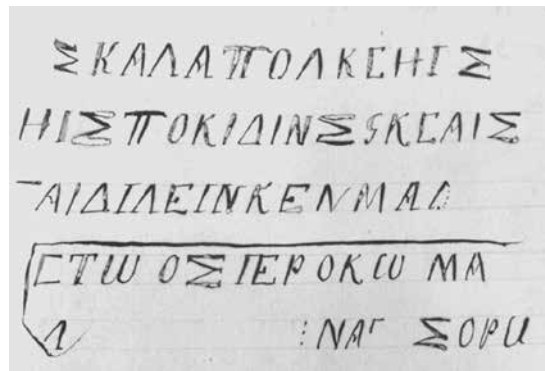 ΣΚΑΛΑΠΟΛΚΕΗΓΣ
ΗΙΣΠΟΚΙΔΙΝΣSΚΕΑΙΣ
ΑΙΔΙΛΕΙΝΚΕΝΜΑΔ
ΕΤΩ ΟΣΙΕΡΟΚΩ ΜΑ
Λ :ΝΑΓ ΣΟΡΩ